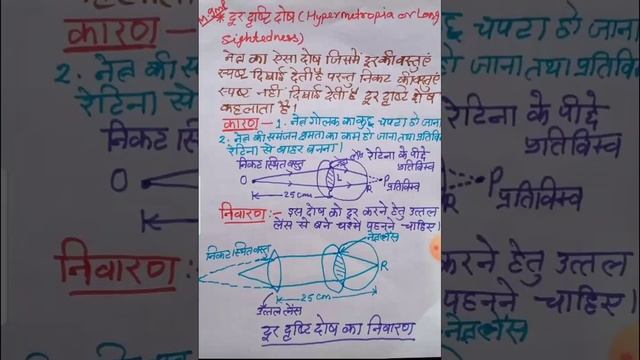 * दूर दृष्टि दोष (Hypermetropia or Long
Sightedness)
नेत्र का ऐसा दोष जिसमें दूर की वस्तुएं
स्पष्ट दिखाई देती है परन्तु निकट की वस्तुएं
स्पष्ट नहीं दिखाई देती है दूर दृष्टि दोष
कहलाता है।
कारण - 1. नेत्र गोलक का कुछ चपटा हो जाना
2. नेत्र की समंजन क्षमता का कम हो जाना तथा प्रतिबिम्ब
रेटिना से बाहर बनना।
निकट स्थित वस्तु
रेटिना के पीछे
प्रतिबिम्ब
O
L
R
P
25 cm
निवारण :- इस दोष को दूर करने हेतु उत्तल
लेंस से बने चश्मे पहनने चाहिए।
निकट स्थित वस्तु
नेत्र लेंस
R
25 cm
उत्तल लेंस
दूर दृष्टि दोष का निवारण
कारण
कुछ चपटा हो जाना
2. नेत्र की स
हो जाना तथा प्रतिबि
रेटिना से
निकट स्थित
O
रेटिना के पीछे
प्रतिबिम्ब
P
प्रतिबिम्ब
निवारण :-
करने हेतु उत्तल
पहनने चाहिए।
नेत्र लेंस